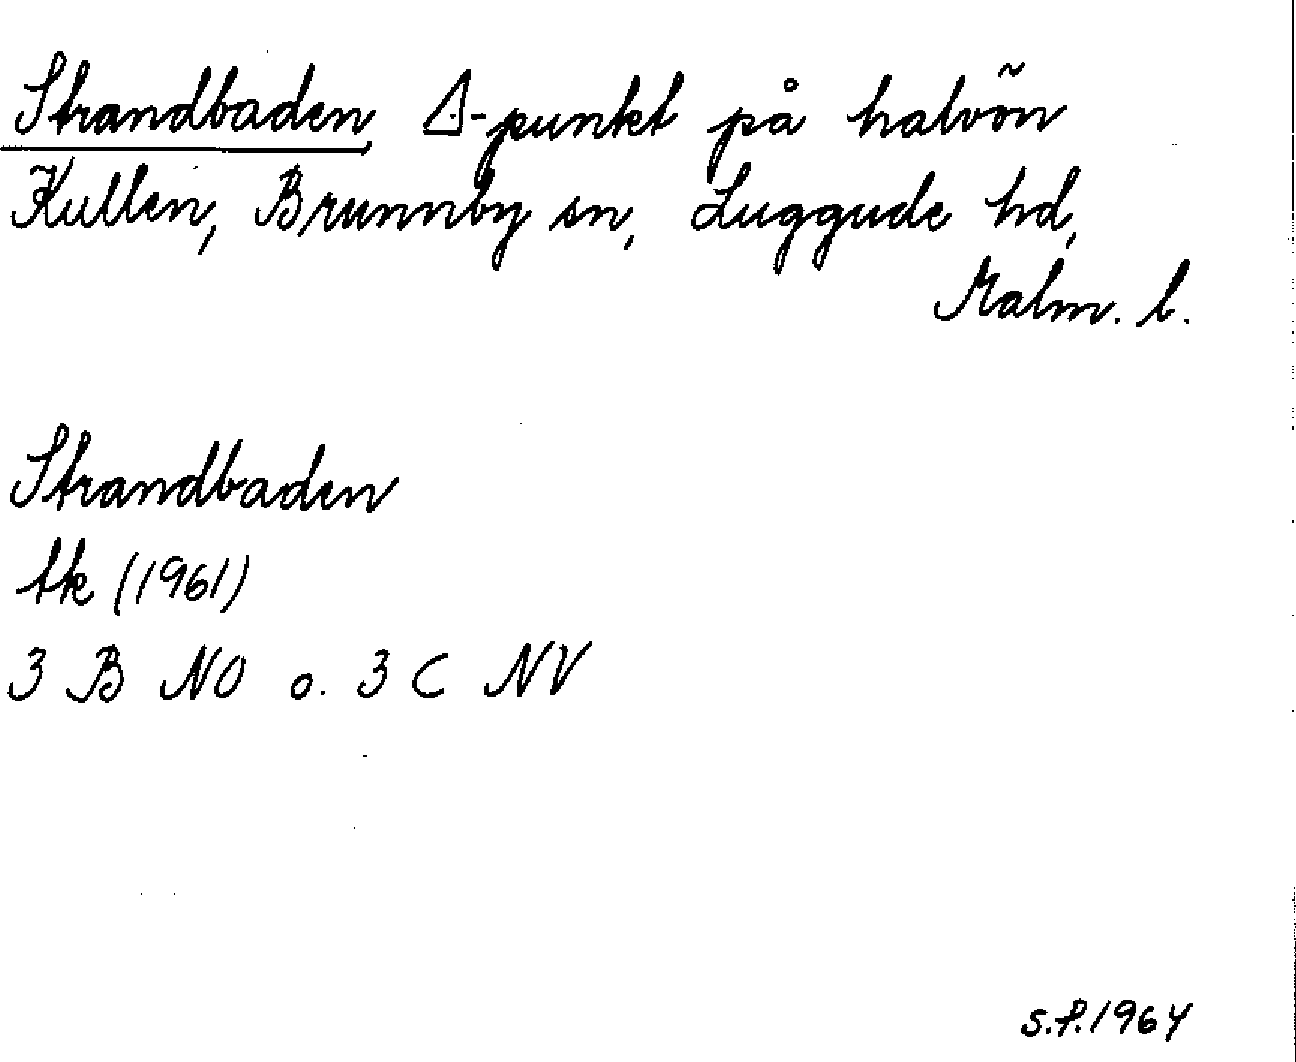 Strandbaden, △-punkt på halvön
Kullen, Brunnby sn, Luggude hd,
Malm. l.
Strandbaden
tk (1961)
3 B NO o. 3 C NV
S.P. 1964